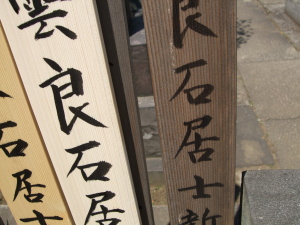 良石居士
雲良石居
石居士